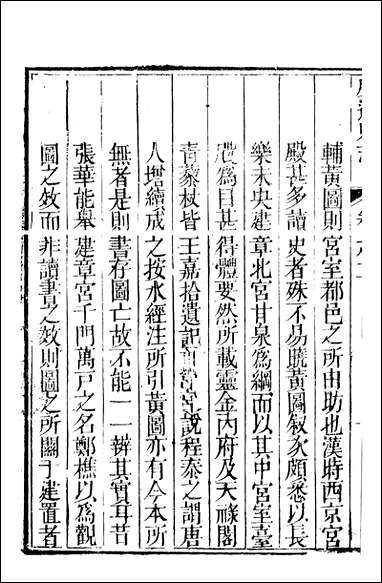 輔黃圖則宮室都邑之所由助也漢時西京宮
殿甚多讀史者殊不易曉黃圖敘次頗悉以長
樂未央建章北宮甘泉爲綱而以其中宮室臺
爲目甚得體要然所載靈金內府及天祿閣
青藜杖皆王嘉拾遺記說程泰之謂唐
人增續成之按水經注所引黃圖亦有今本所
無者是則書存圖亡故不能一一辨其實耳昔
張華能舉建章宮千門萬戸之名鄭樵以爲觀
圖之效而非讀書之效則圖之所關于建置者